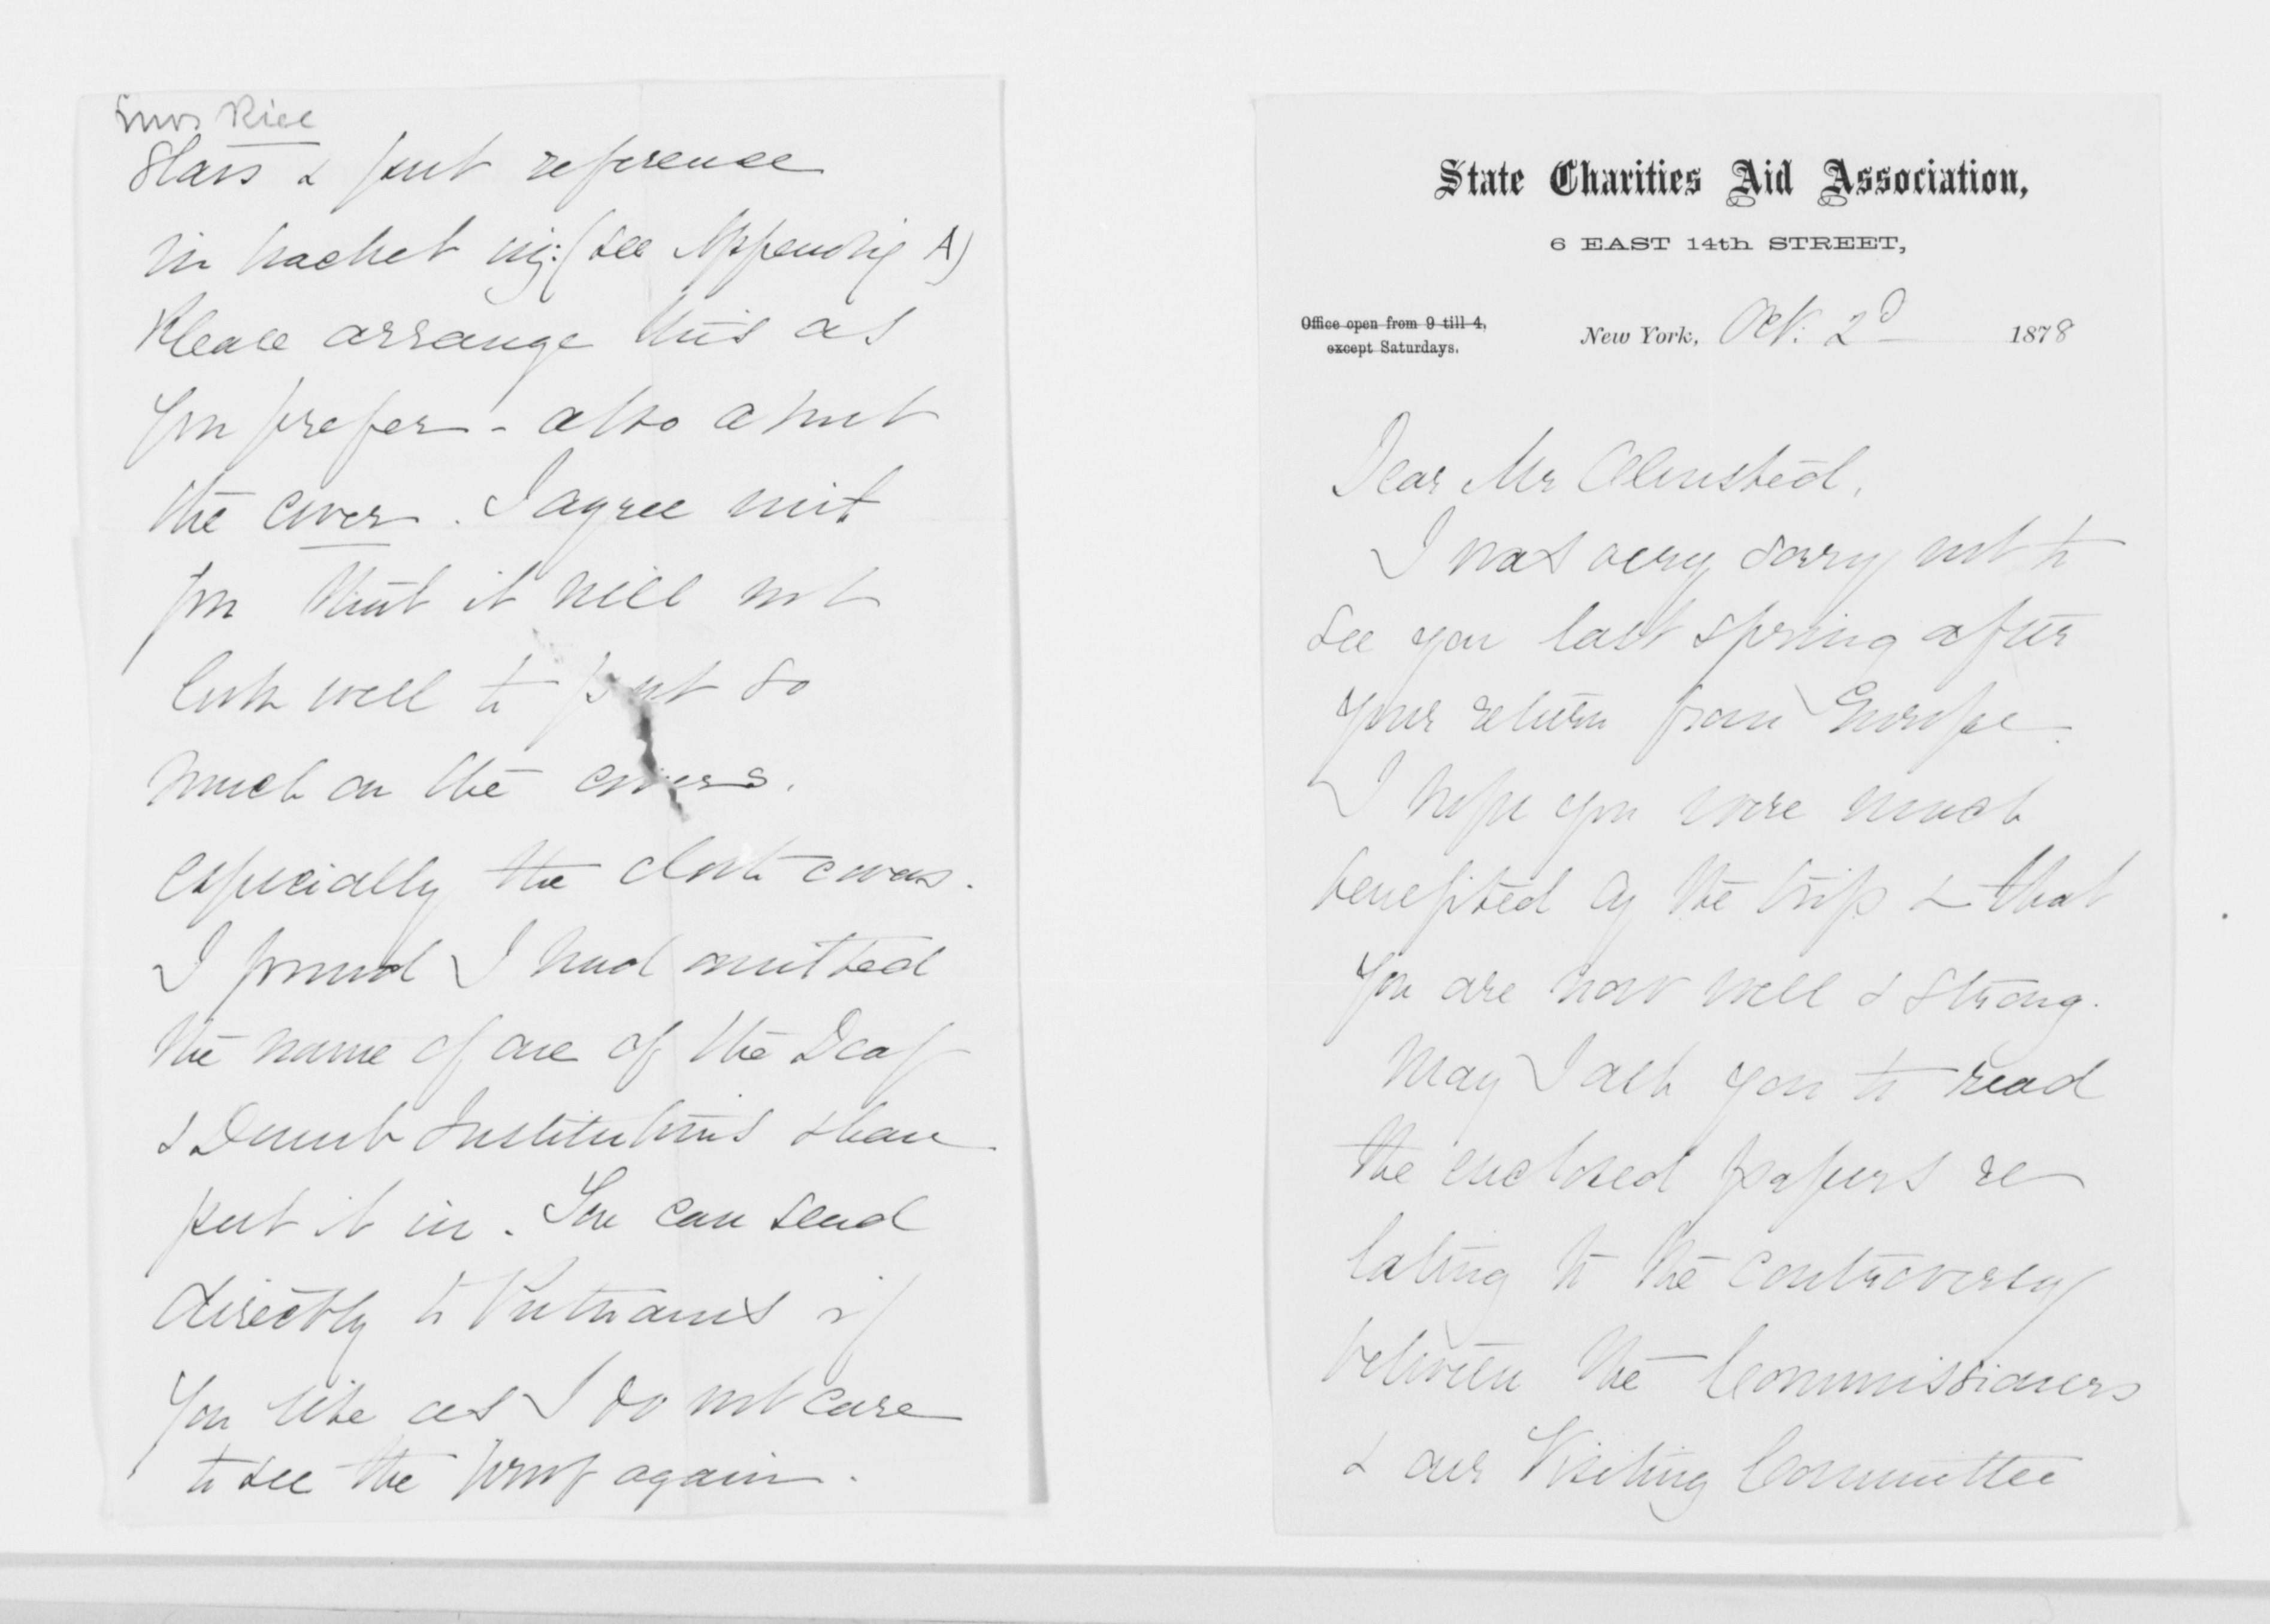 Mrs Rice
Stars & put reference
in bracket viz: (see Appendix A)
Please arrange this as
you prefer - also about
the cover. I agree with
you that it will not
look well to put so
much on the covers.
especially the cloth covers.
I found I had omitted
the name of one of the Deaf
& Dumb Institutions & have
put it in. You can send
directly to Putnams if
you like as I do not care
to see the proof again.
State Charities Aid Association,
6 EAST 14th STREET,
Office open from 9 till 4,
except Saturdays.
New York, Oct. 2d 1878
Dear Mr Olmsted,
I was very sorry not to
see you last spring after
your return from Europe.
I hope you were much
benefited by the trip & that
you are now well & strong.
May I ask you to read
the enclosed papers re
lating to the controversy
between the Commissioners
& our Visiting Committee